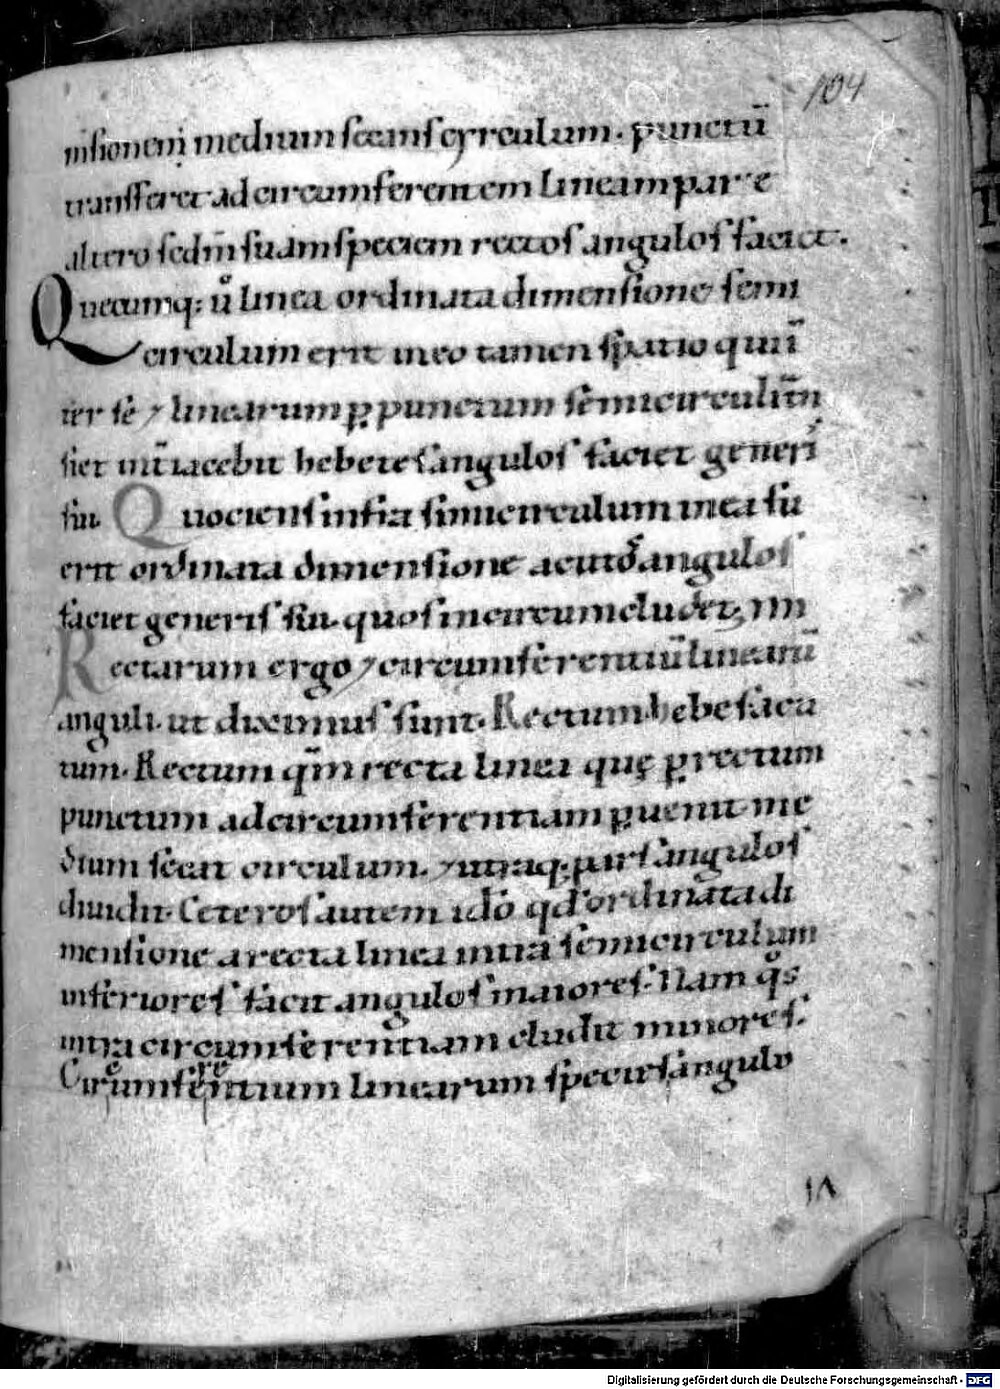 104
nisionem medium secans cyrculum. punctū
transferet ad circumferentem lineam par te
altero secdm̄ suam speciem rectos angulos faciet.
Quecumq; ů linea ordinata dimensione semi
circulum erit in eo tamen spatio quin̄
ter se & linearum ꝑ punctum semicirculum
fiet int̄iacebit hebetes angulos faciet generi
sui. Quociens infra simicirculum inea su
erit ordinata dimensione acutos angulos
faciet generis sui. quos in circumcluder& ini
Rectarum ergo & circumferentiuū linearū
anguli. ut diximus sunt. Rectum. hebes acu
tum. Rectum qm̄ recta linea quę ꝑ rectum
punctum ad circumferentiam ꝑuenit me
dium secat circulum. & utraq; pars angulos
diuidit. Ceteros autem ido̅ qd̓ ordinata di
mensione a recta linea intra semicirculum
inferiores facit angulos maiores. Nam qͦs
intra circumferentiam cludit minores.
Circumferentium linearum species angulo
Digitalisierung gefördert durch die Deutsche Forschungsgemeinschaft - DFG